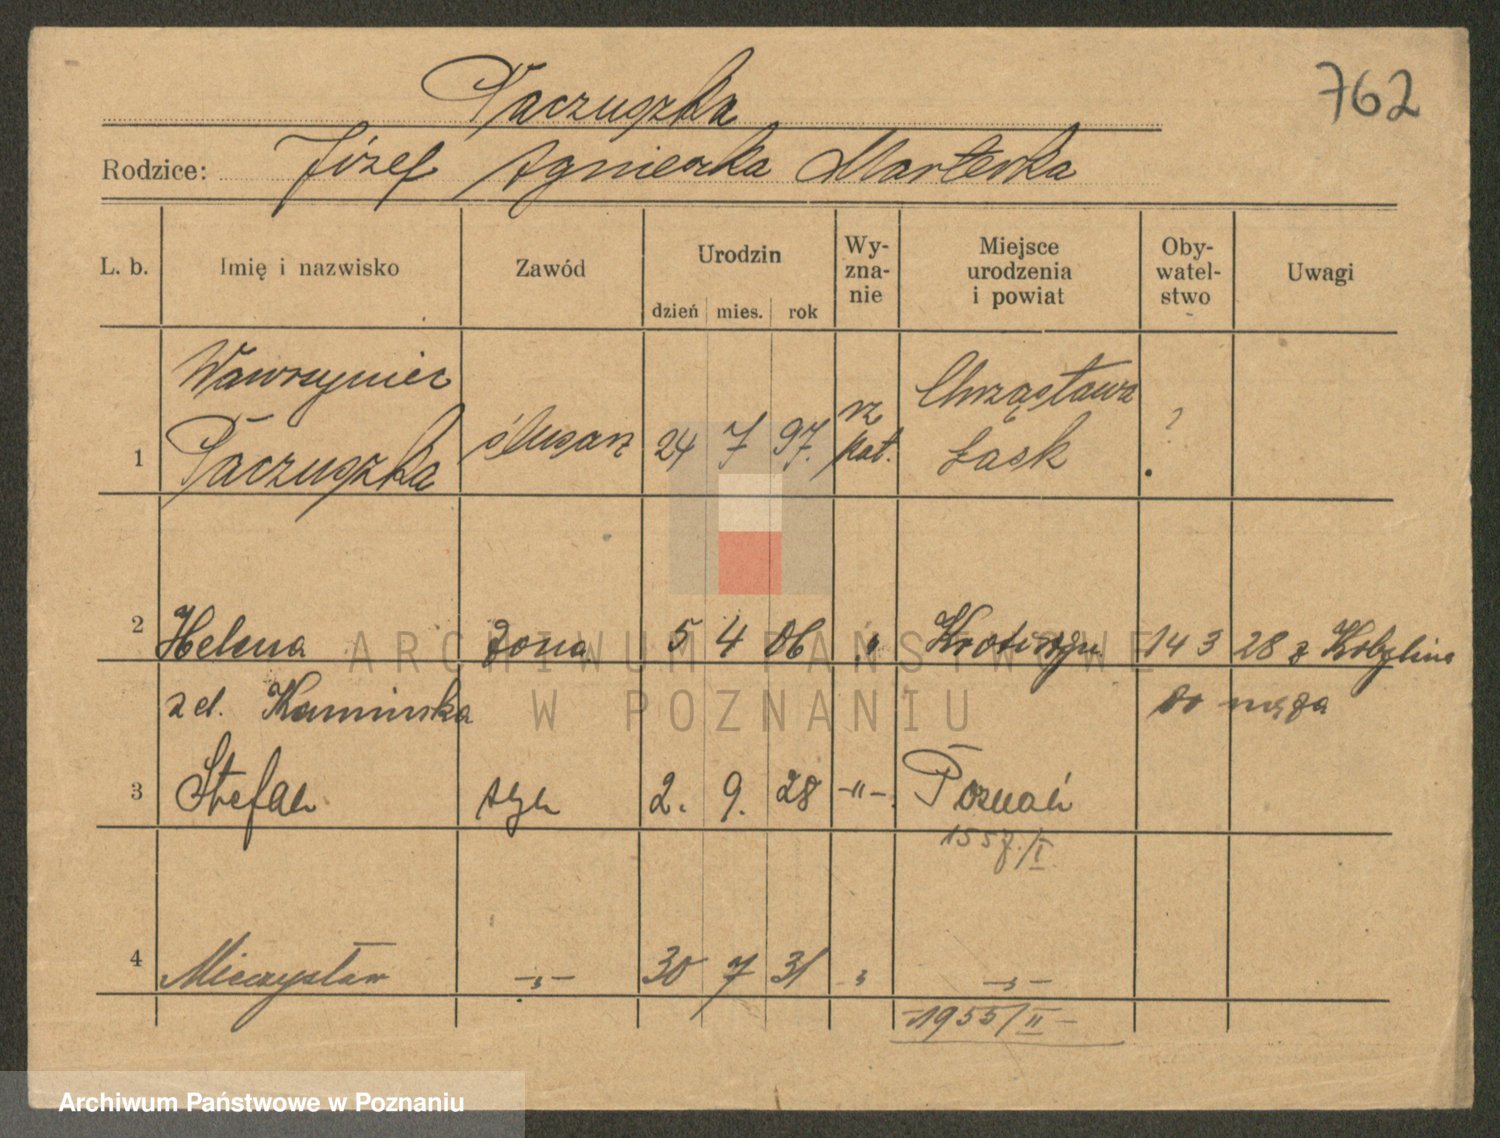 762
Paczuszka
Rodzice: Józef Agnieszka Marteska
L. b. Imię i nazwisko Zawód Urodzin dzień mies. rok Wy-zna-nie Miejsce urodzenia i powiat Oby-watel-stwo Uwagi
Wawrzyniec Chrząstawa
1 Paczuszka ślusarz 24 7 97. rz kat. Łask ?
2 Helena żona 5 4 06 " Krotoszyn 14 3 28 z Kobylina
zd. Kaminska do męża
3 Stefan syn 2. 9. 28 -"-. Poznań
1557./I
4 Mieczysław -"- 30 7 31 " -"-
1955/II-
ARCHIWUM PAŃSTWOWE
W POZNANIU
Archiwum Państwowe w Poznaniu